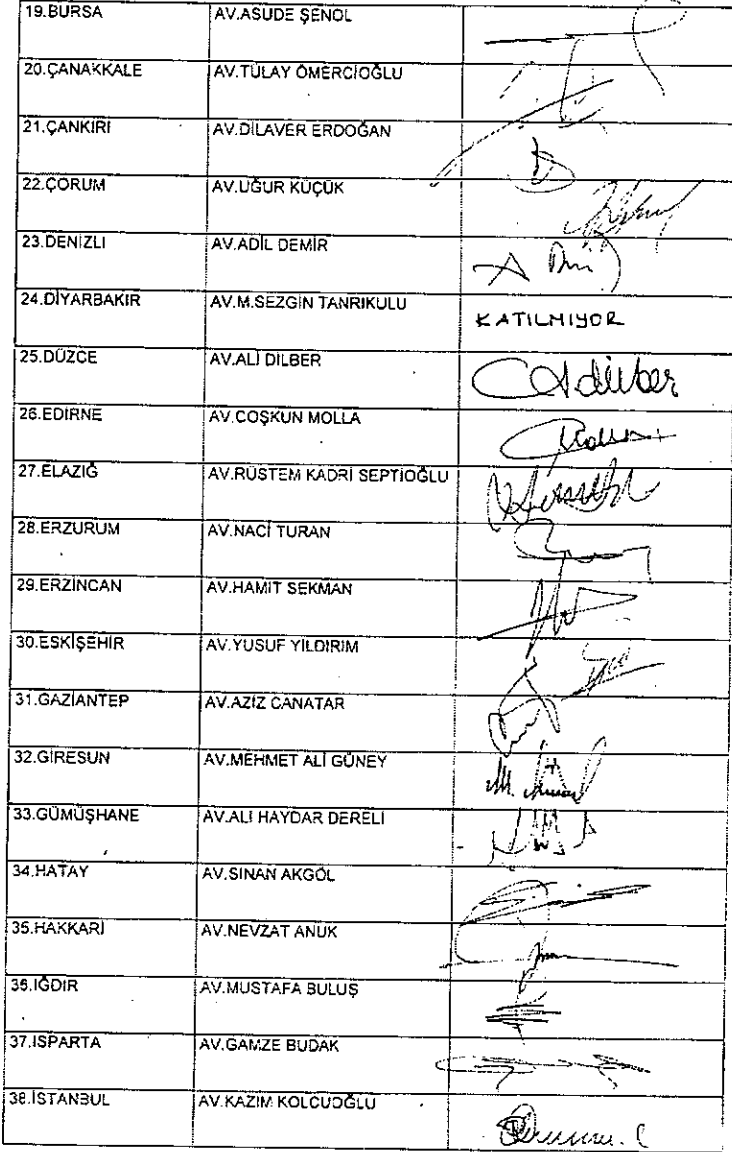 19.BURSA AV.ASUDE ŞENOL
20.ÇANAKKALE AV.TÜLAY ÖMERCİOĞLU
21.ÇANKIRI AV.DİLAVER ERDOĞAN
22.ÇORUM AV.UĞUR KÜÇÜK
23.DENİZLİ AV.ADİL DEMİR
24.DİYARBAKIR AV.M.SEZGİN TANRIKULU KATILMIYOR
25.DÜZCE AV.ALİ DİLBER
26.EDİRNE AV.COŞKUN MOLLA
27.ELAZIĞ AV.RÜSTEM KADRİ SEPTİOĞLU
28.ERZURUM AV.NACİ TURAN
29.ERZİNCAN AV.HAMİT SEKMAN
30.ESKİŞEHİR AV.YUSUF YILDIRIM
31.GAZİANTEP AV.AZİZ CANATAR
32.GİRESUN AV.MEHMET ALİ GÜNEY
33.GÜMÜŞHANE AV.ALİ HAYDAR DERELİ
34.HATAY AV.SİNAN AKGÖL
35.HAKKARİ AV.NEVZAT ANUK
36.IĞDIR AV.MUSTAFA BULUŞ
37.ISPARTA AV.GAMZE BUDAK
38.İSTANBUL AV.KAZIM KOLCUOĞLU